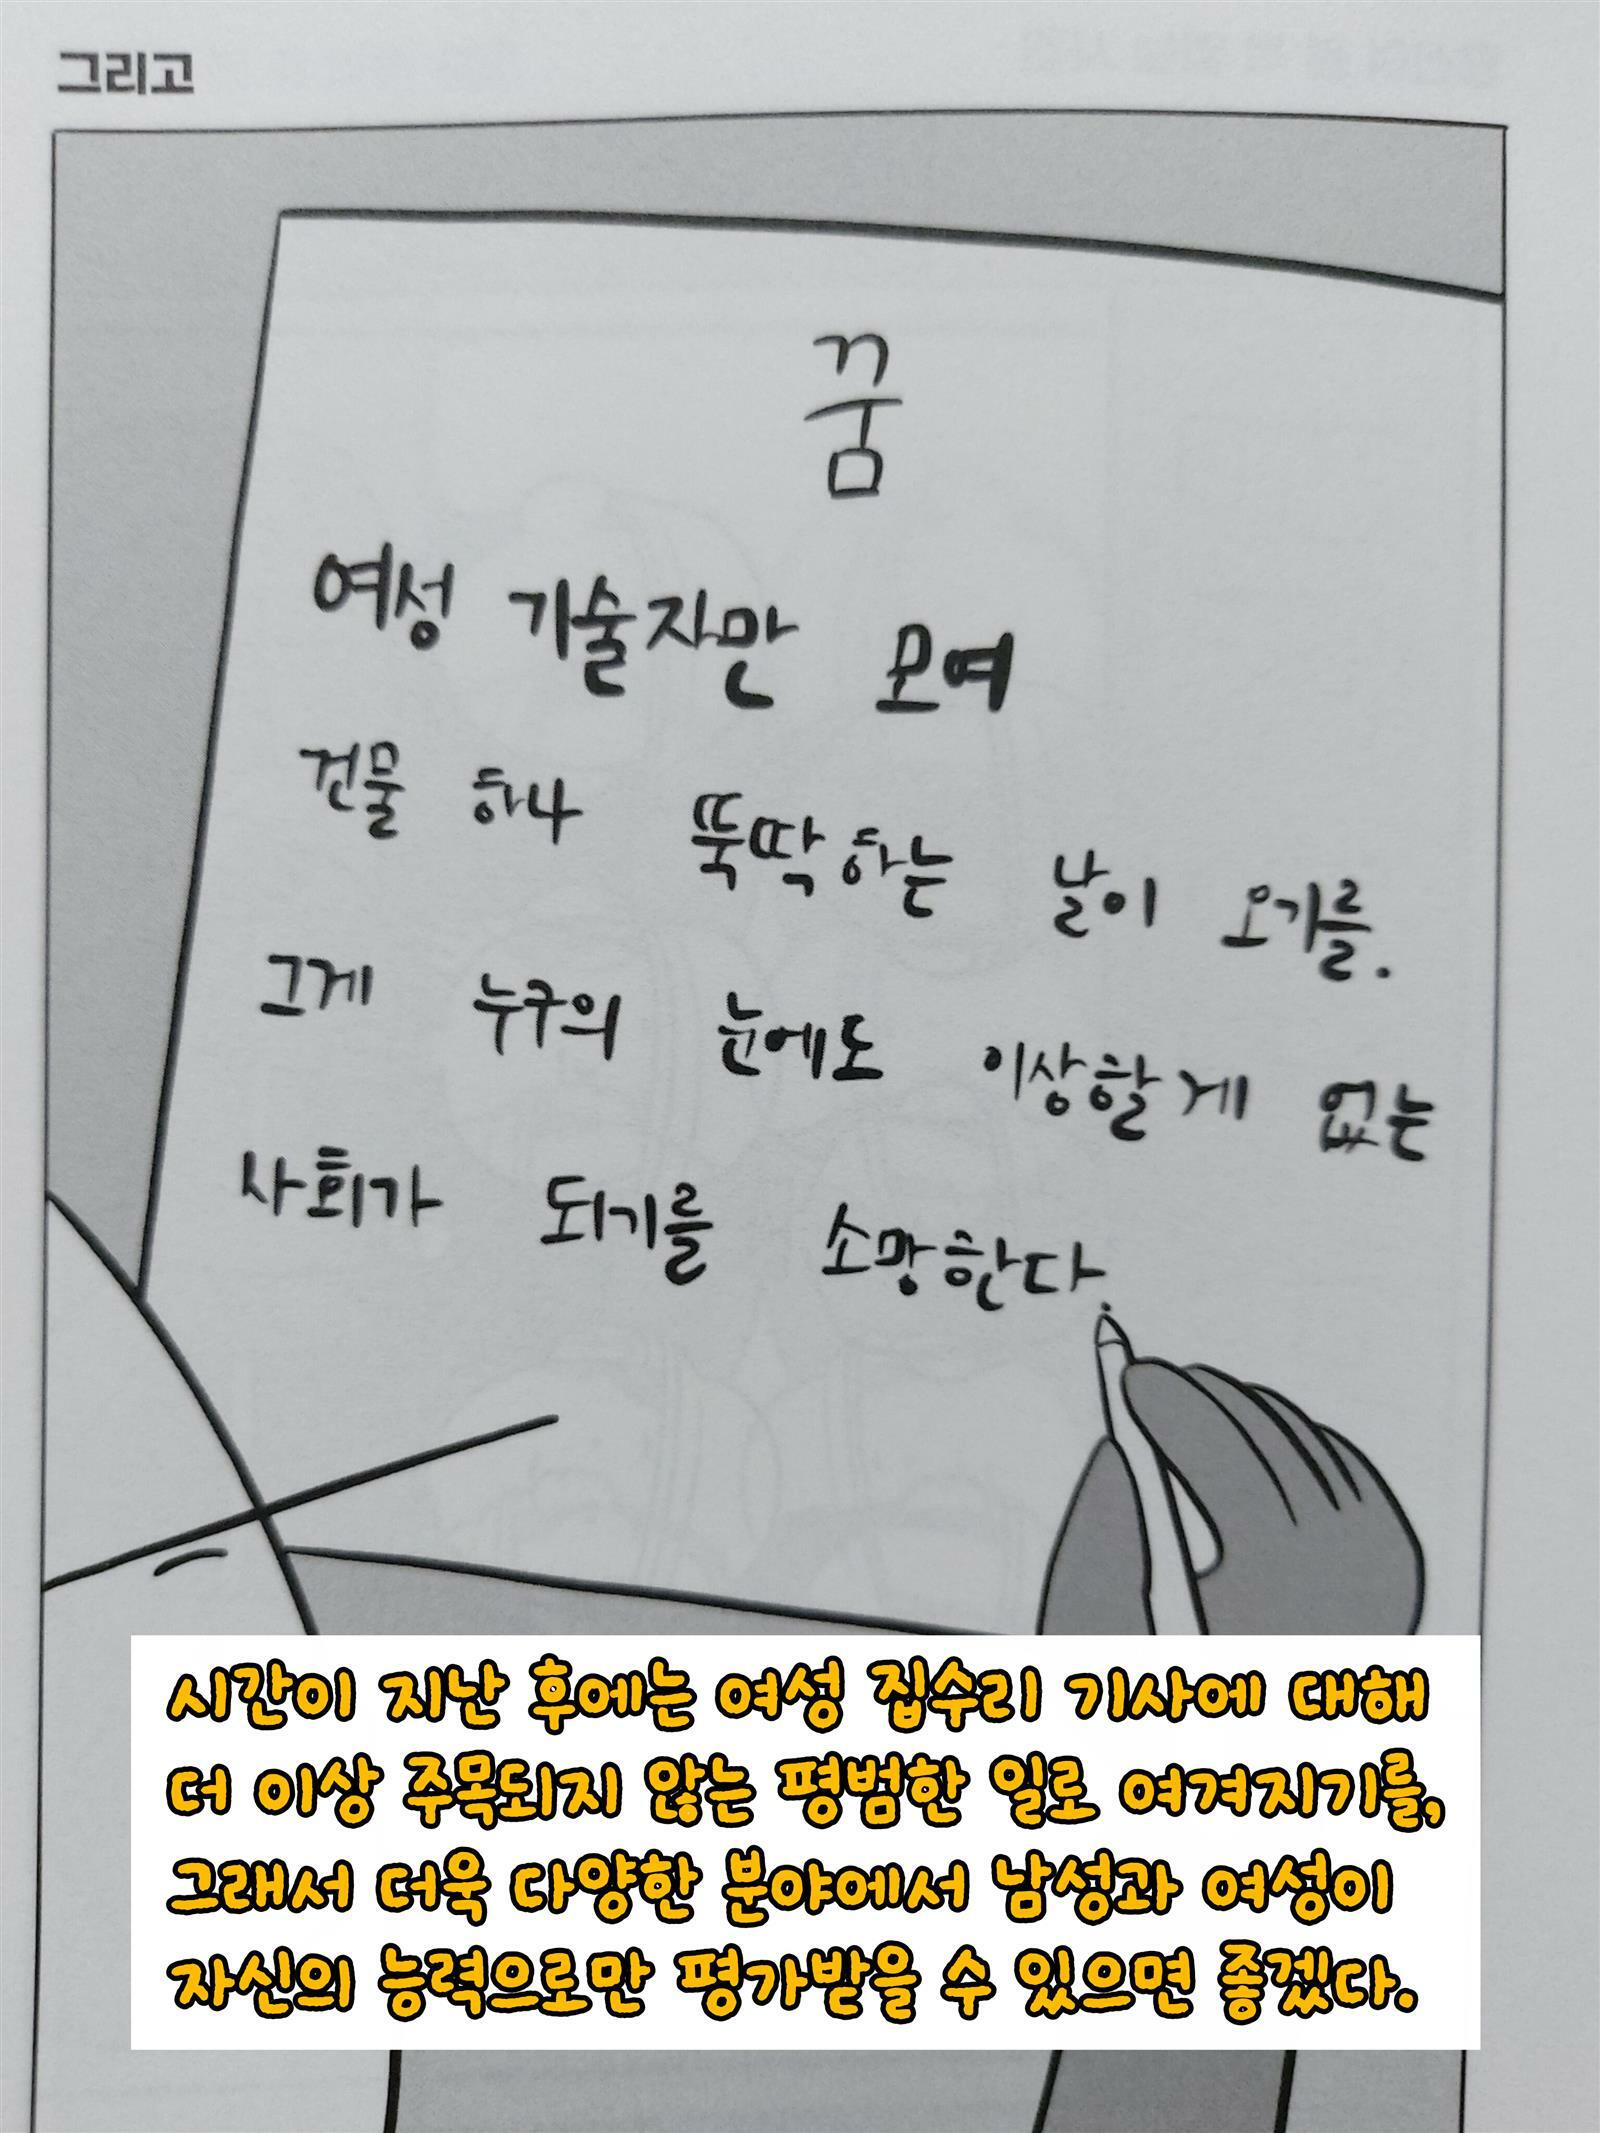 그리고
꿈
여성 기술자만 모여
건물 하나 뚝딱하는 날이 오기를.
그게 누구의 눈에도 이상할게 없는
사회가 되기를 소망한다.
시간이 지난 후에는 여성 집수리 기사에 대해
더 이상 주목되지 않는 평범한 일로 여겨지기를,
그래서 더욱 다양한 분야에서 남성과 여성이
자신의 능력으로만 평가받을 수 있으면 좋겠다.